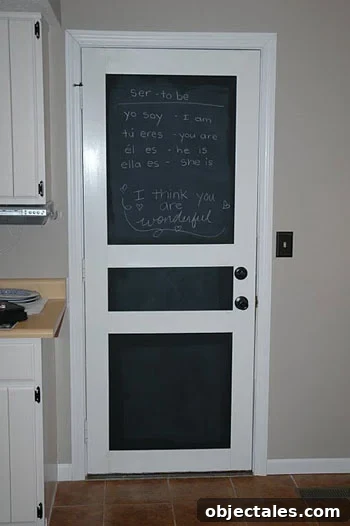 ser - to be
yo soy - I am
tú eres - you are
él es - he is
ella es - she is
I think you
are
wonderful
objectales.com